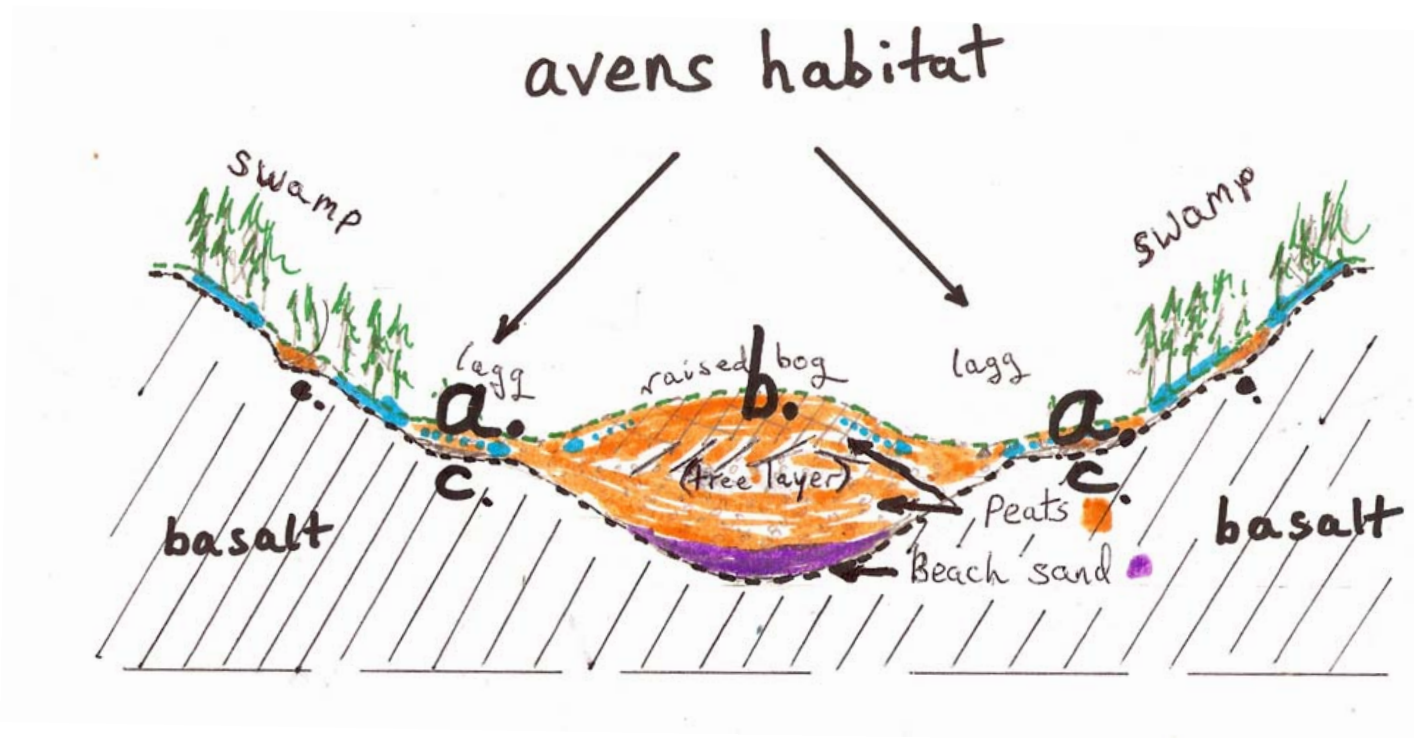 avens habitat
swamp
swamp
lagg
raised bog
lagg
a.
b.
a.
c.
(tree layer)
c.
c.
c.
Peats
basalt
basalt
Beach sand